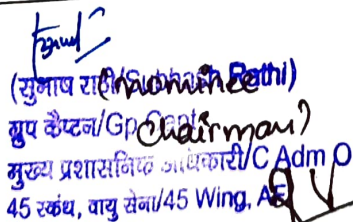 (सुभाष राठी/Subhash Rathi)
(Nominee
ग्रुप कैप्टन/Gp Capt
Chairman)
मुख्य प्रशासनिक अधिकारी/C Adm O
45 स्कंध, वायु सेना/45 Wing, AF